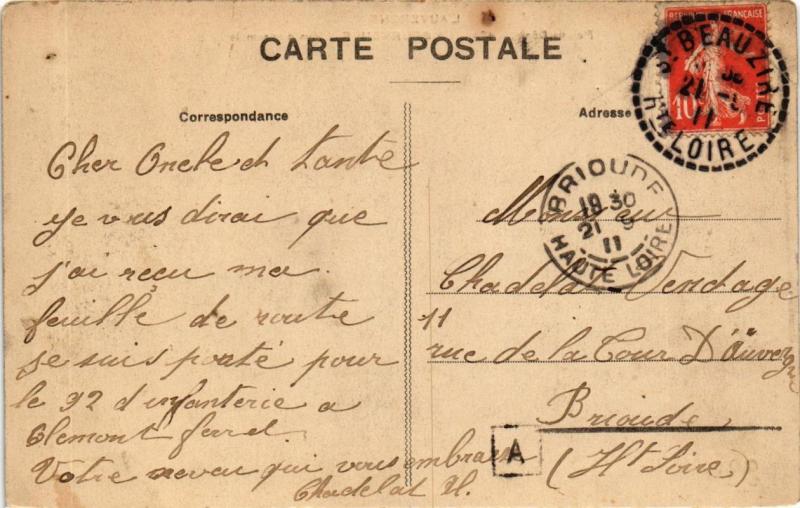 CARTE POSTALE
Correspondance
Cher Oncle et tante
je vous dirai que
j'ai reçu ma
feuille de route
je suis porté pour
le 92 d'infanterie a
Clemont ferd.
Votre neveu qui vous embrasse
Chadelat H.
Adresse
Monsieur
Chadelat Vendage
11
rue de la Tour D'Auvergne
Brioude
(Hte Loire)
A
ST BEAUZIRE
21 -
11
HTE LOIRE
10
BRIOUDE
18 30
21 9
11
HAUTE LOIRE